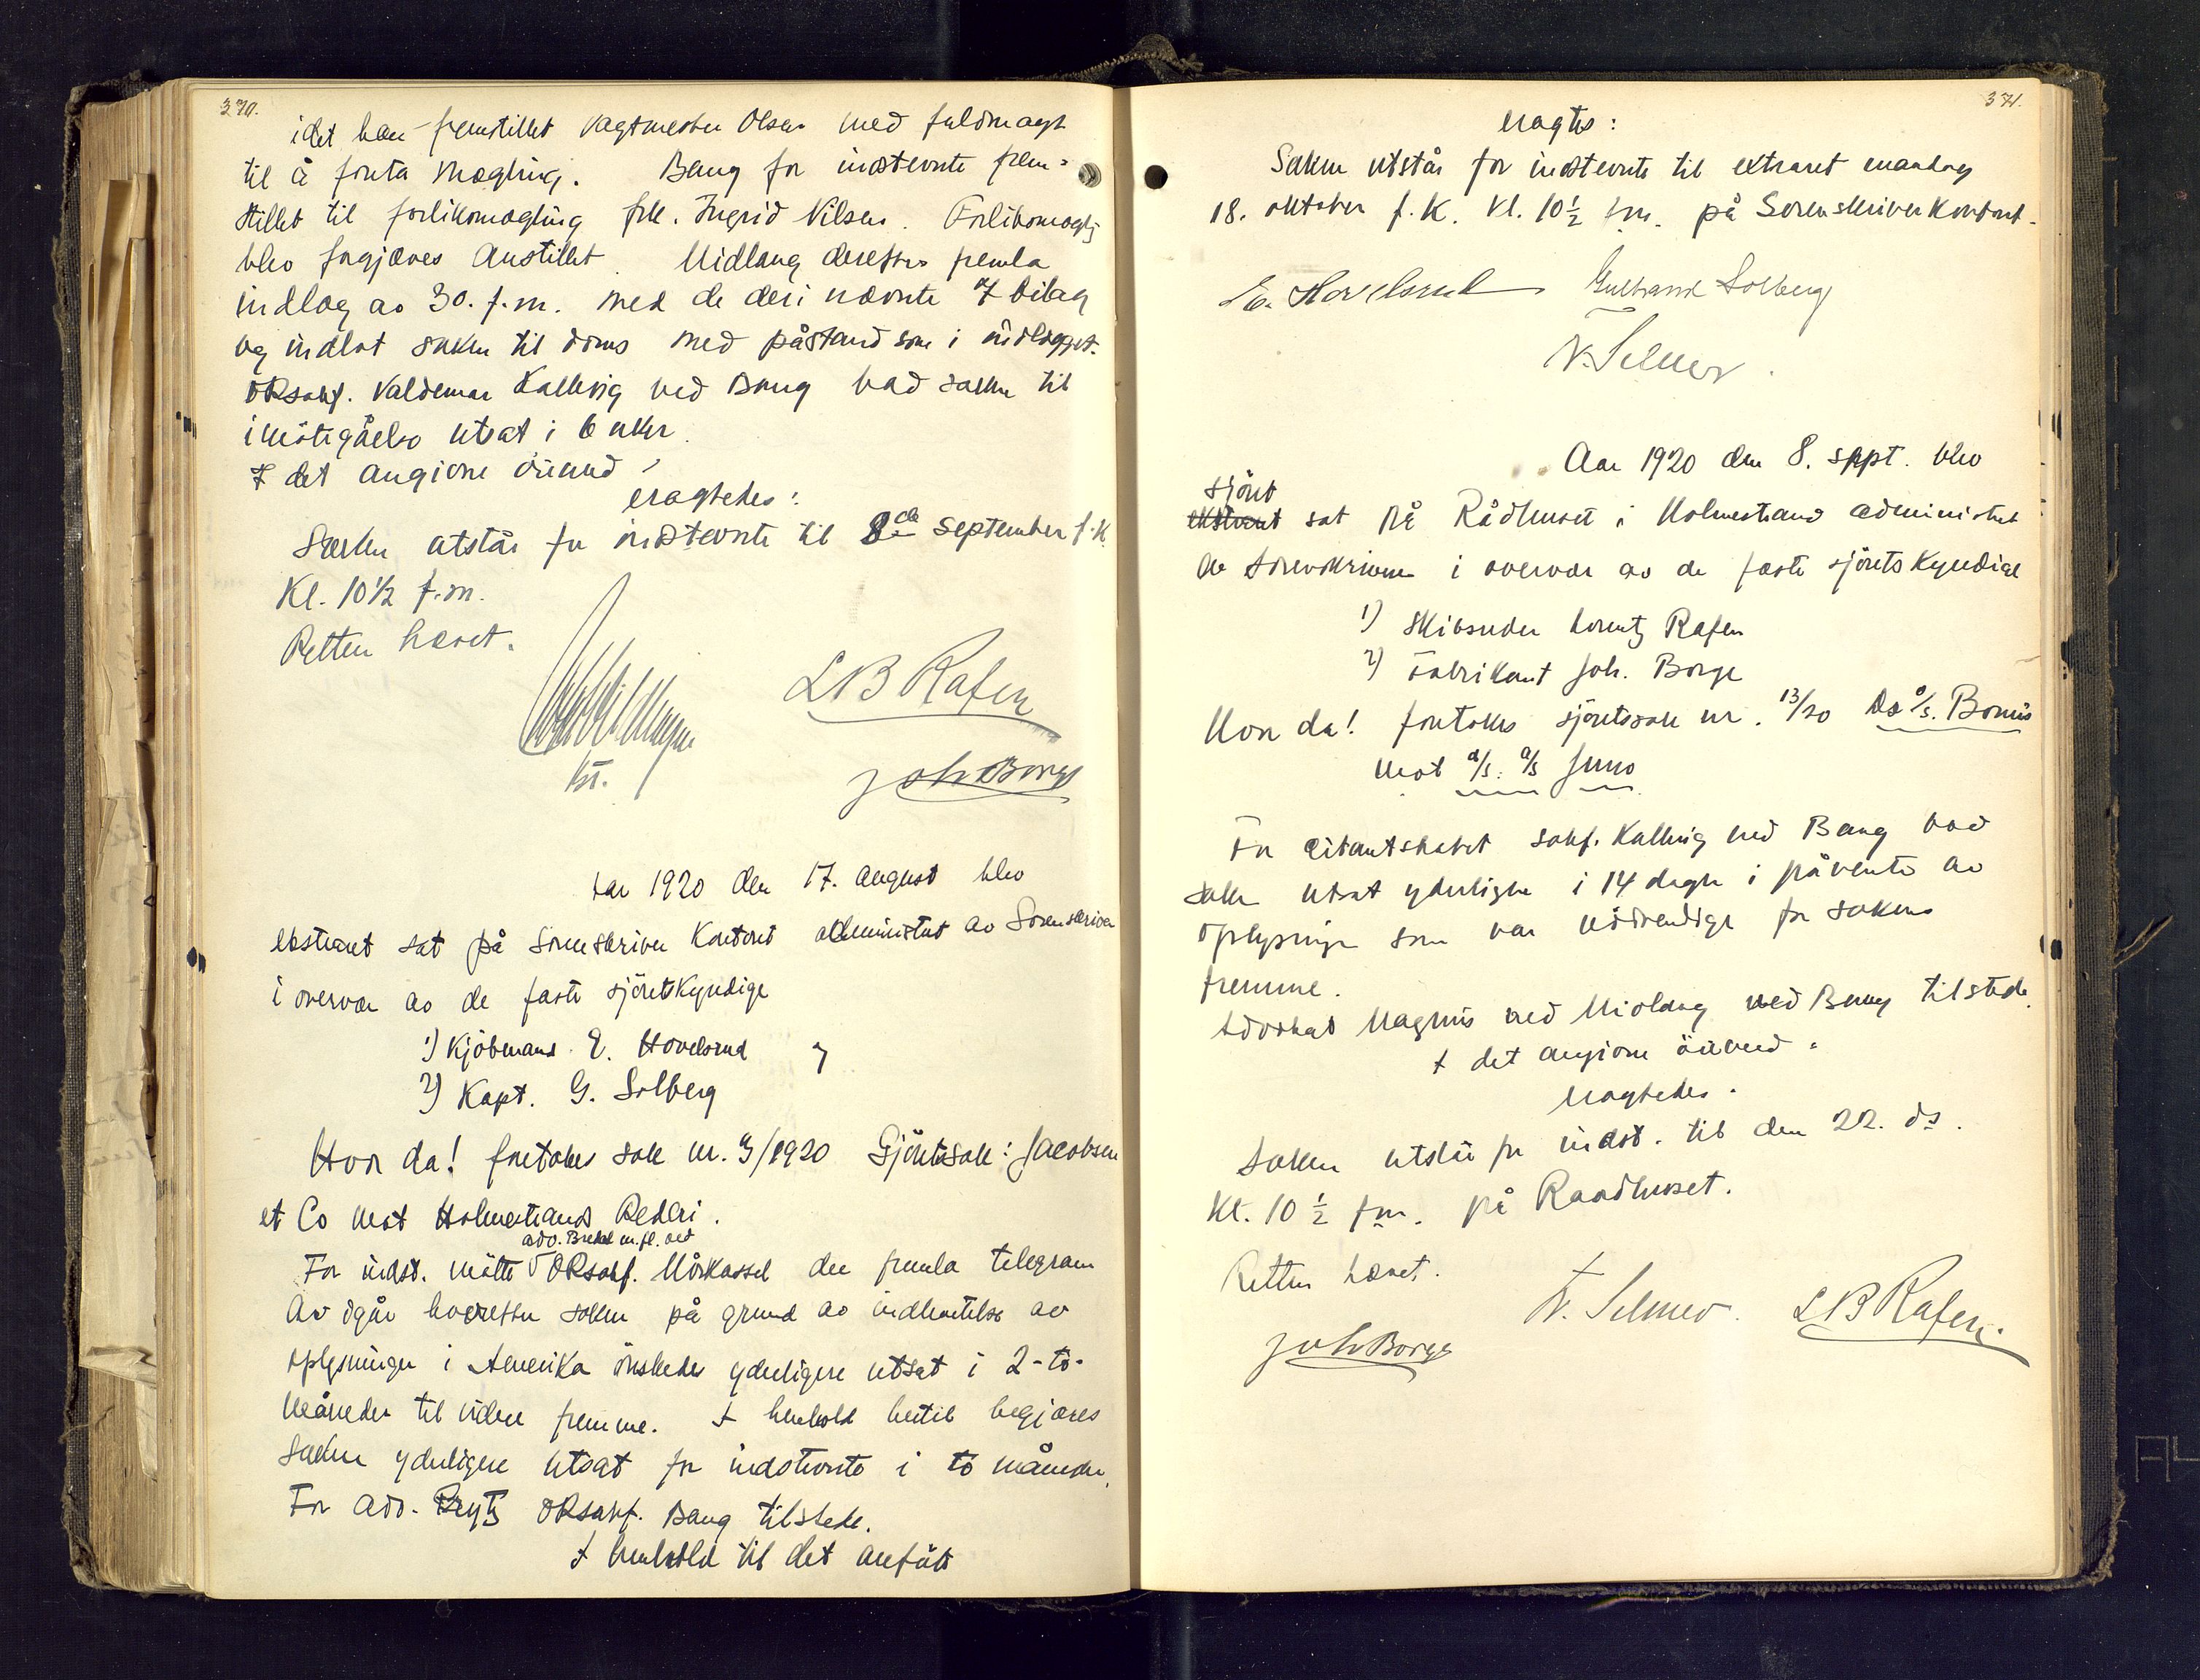 370.
idet han fremstillet vagtmester Olsen med fuldmagt
til å foreta Mægling. Bang for indstevnte frem-
stillet til forliksmægling frk. Ingrid Nilsen. Forliksmægling
blev forgjæves Anstillet. Midlang derefter fremla
indlæg av 30. f.m. med de deri nævnte 7 bilag
og indlot saken til doms med påstand som i indlægget.
ORsakf. Valdemar Kallevig ved Bang bad saken til
imøtegåelse utsat i 6 uker.
I det angivne øiemed
eragtedes:
Saken utstår for indstevnte til 8de september f.k.
Kl. 10 1/2 f.m.
Retten hævet.
LB Rafen
kst.
Joh Borge
Aar 1920 den 17. august blev
ekstraret sat på Sorenskriver Kontoret administret av Sorenskriver
i overvær av de faste sjöretskyndige
1) Kjöbmand E. Hovelsrud
2) Kapt. G. Solberg
Hvor da! foretokes sak nr. 9/1920 Sjöretssak: Jacobsen
et Co mot Holmestrands Rederi.
adv. Bredal m.fl. ved
For indst. mötte ORsakf. Mörkassel der fremla telegram
Av igår hvorefter saken på grund av indhentelse av
oplysninger i Amerika önskedes yderligere utsat i 2-to-
Måneder til videre fremme. I henhold hertil begjæres
Saken yderligere utsat for indstevnte i to måneder.
For adv. Reytz ORsakf. Bang tilstede.
I henhold til det anførte
371.
eragtes:
Saken utstår for indstevnte til extraret mandag
18. oktober f.k. kl. 10 1/2 fm. på Sorenskriverkontoret.
E. Hovelsrud Gulbrand Solberg
N. Selmer.
Aar 1920 den 8. sept. blev
sjöret
ekstraret sat på Rådhuset i Holmestrand administret
av Sorenskriveren i overvær av de faste sjöretskyndige
1) Skibsreder Lorentz Rafen
2) Fabrikant Joh. Borge
Hvor da! foretokes sjöretssak nr. 13/20 Ds a/s. Bonus
mot d/s. a/s Juno
For Citantskabet sakf. Kallevig ved Bang bad
saken utsat yderligere i 14 dager i påvente av
oplysninger som var nödvendige for sakens
fremme.
Advokat Magnus ved Midlang ved Bang tilstede.
I det angivne öiemed
eragtedes.
Saken utstår for indst. til den 22. ds.
Kl. 10 1/2 fm. på Raadhuset.
Retten hævet.
N. Selmer. LB Rafen.
Joh Borge